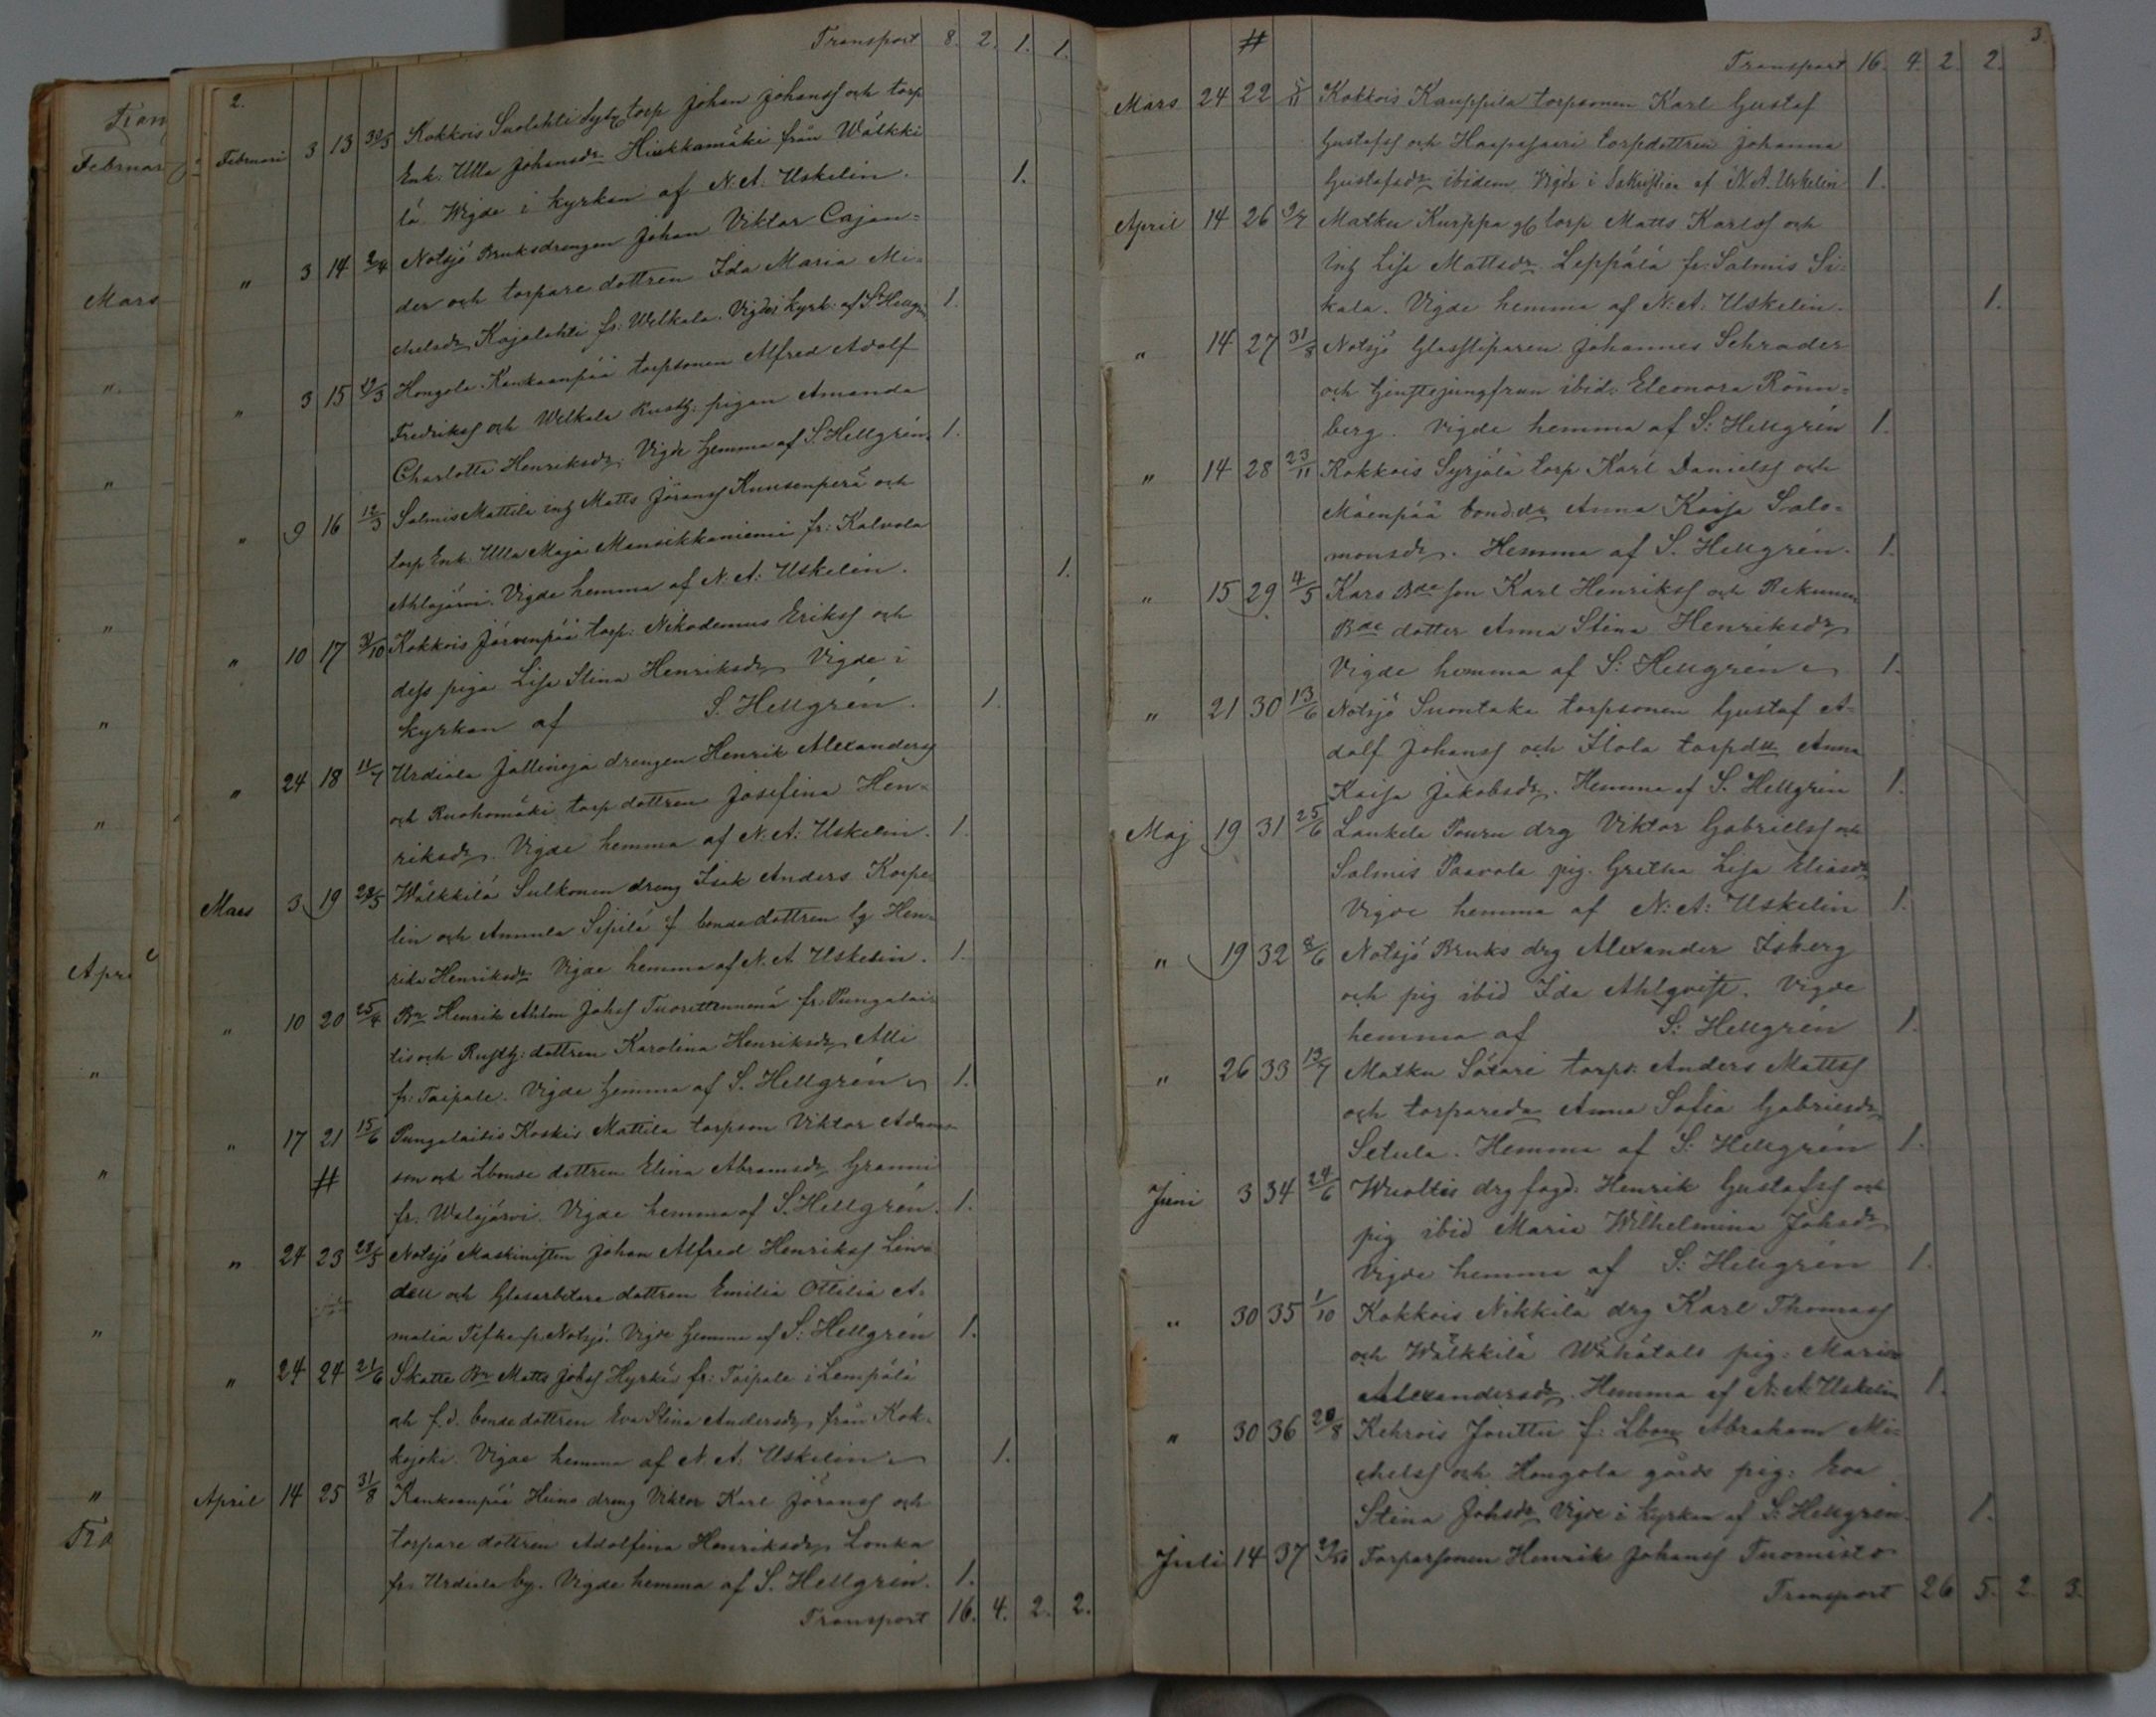 Transport 8. 2. 1. 1.
2.
Februari 3 13 30/3 Kokkois Suolahti torp Johan Johanss och torp
Enk. Ulla Johansdr Hiukkamäki från Wälkki
lä Wigde i kyrkan af N. A. Uskelin. 1.
" 3 14 2/4 Notsjö Bruksdrengen Johan Viktor Cajan=
der och torpare dottren Ida Maria Mi=
chelsdr Kajalahti fr: Welkala. Vigde i kyrk: af S. Hellgrén 1.
" 3 15 19/3 Hongola Kankaanpää torpsonen Alfred Adolf
Fredrikss och Welkala Rusth: pigan Amanda
Charlotta Henriksdr. Vigde hemma af S. Hellgrén. 1.
" 9 16 12/3 Salmis Mattila inh Matts Jöranss Knuusenperä och
torp Enk. Ulla Maja Mansikkaniemi fr: Kalvola
Ahlajärvi. Vigde hemma af N. A: Uskelin. 1.
" 10 17 3/10 Kokkois Järvenpää torp: Nikodemus Erikss och
dess piga Lisa Stina Henriksdr Vigde i
kyrkan af S. Hellgrén. 1.
" 24 18 11/7 Urdiala Jallinoja drengen Henrik Alexanderss
och Ruohomäki torp dottren Josefina Hen=
riksdr. Vigde hemma af N. A: Uskelin. 1.
Mars 3 19 28/5 Wälkkilä Sulkonen dreng Isak Anders Korpe=
lin och Annula Sipilä f. bonde dottren Hen=
rika Henriksdr Vigde hemma af N. A. Uskelin. 1.
" 10 20 25/4 Bn Henrik Ahlon Johss Tuorettenmaa fr: Pungalai=
tis och Rusth: dottren Karolina Henriksdr Alli
fr: Taipale. Vigde hemma af S. Hellgrén 1.
" 17 21 15/6 Pungalaitis Koskis Mattila torpson Viktor Adams=
# son och Lbonde dottren Elina Abramsdr Granni
fr: Walajärvi. Vigde hemma af S. Hellgrén. 1.
" 24 23 28/5 Notsjö Maskinisten Johan Alfred Henrikss Lin=
dell och Glasarbetare dottren Emilia Ottilia A=
malia Tefke fr. Notsjö. Vigde hemma af S: Hellgrén 1.
" 24 24 21/6 Skatte Bn Matts Johss Hyrkö fr: Taipale i Lempälä
och f.d. bonde dottren Eva Stina Andersdr från Kok=
kojoki. Vigde hemma af N. A. Uskelin 1.
April 14 25 31/8 Kankaanpää Heino dreng Viktor Karl Jöranss och
torpare dottren Adolfina Henriksdr Lonka
fr. Urdiala by. Vigde hemma af S. Hellgrén. 1.
Transport 16. 4. 2. 2.
3.
Transport 16. 4. 2. 2.
#
Mars 24 22 Kokkois Kauppila torpsonen Karl Gustaf
Gustafss och Haapasaari torpdottren Johanna
Gustafsdr ibidem Vigde i Sakristian af N. A. Uskelin 1.
April 14 26 9/7 Matku Kurppa torp Matts Karlss och
Inh Lisa Mattsdr Leppälä fr: Salmis Si=
kala. Vigde hemma af N: A: Uskelin. 1.
" 14 27 31/8 Notsjö Glasslipare Johannes Schrader
och hustrejungfrun ibid: Eleonora Rönn=
berg. Vigde hemma af S: Hellgrén 1.
" 14 28 23/11 Kokkois Syrjälä torp Karl Danielss och
Mäenpää bond:dr Anna Kaisa Salo=
monsdr. Hemma af S. Hellgrén. 1.
" 15 29 4/5 Kars Bde son Karl Henrikss och Rekunen
Bde dotter Anna Stina Henriksdr
Vigde hemma af S: Hellgrén 1.
" 21 30 13/6 Notsjö Suontaka torpsonen Gustaf A=
dolf Johanss och Ilola torpdtt Anna
Kaisa Jakobsdr. Hemma af S. Hellgrén 1.
Maj 19 31 25/6 Laukela Touru drg Viktor Gabrielss och
Salmis Paavola pig. Gretha Lisa Eliasdr
Vigde hemma af N: A: Uskelin 1.
" 19 32 8/6 Notsjö Bruks drg Alexander Isberg
och pig ibid Ida Ahlqvist. Vigde
hemma af S: Hellgrén 1.
" 26 33 13/7 Matku Sätari torps: Anders Mattss
och torpareda Anna Sofia Gabrielsdr
Setula. Hemma af S: Hellgrén 1.
Juni 3 34 24/6 Wuoltis drg fogd: Henrik Gustafss och
pig ibid Maria Wilhelmina Johsdr
Vigde hemma af S: Hellgrén 1.
" 30 35 1/10 Kokkois Nikkilä drg Karl Thomass
och Wälkkilä Wähätalo pig: Maria
Alexandersdr. Hemma af N. A. Uskelin 1.
" 30 36 20/8 Kehrois Jouttu f: Lbon Abraham Mi=
chelss och Hongola gårds pig: Eva
Stina Johsdr Vigde i kyrkan af S: Hellgrén. 1.
Juli 14 37 Torparsonen Henrik Johanss Tuomisto
Transport 26 5. 2. 3.